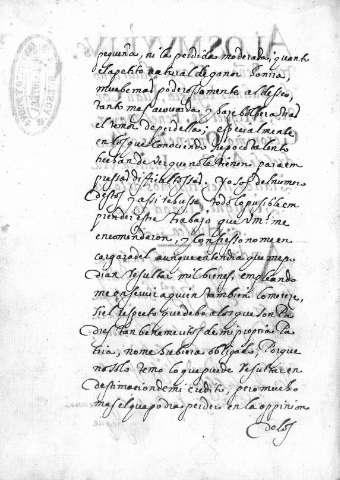 pequeña, ni la perdida moderada, quant
el apetito natural de ganar honrra,
mueba mas poderosamente al desseo,
tanto mas acouarda, y haze bolber atras
el temor de perdella; especialmente
en los que conociendo su poco talento
hechan de ver que no le tienen para em
pressas dificultosas, yo soy del numero
destos y assi rehusse todo lo pusible em
prender este trabajo que V. ms. me
encomendaron, y con esto no me en
cargara del aunque entendia que me po
dian resultar mil bienes, empleando
me en seruir a quien tambien lo mereze,
si el respecto que debo a los que son Pa
dres tan benemeritos de mi propria Pa
tria, no me hubiera obligado, Porque
no solo temo lo que puede resultar en
destimacion de mi credito, pero mucho
mas el que podra perder en la oppinion
de los